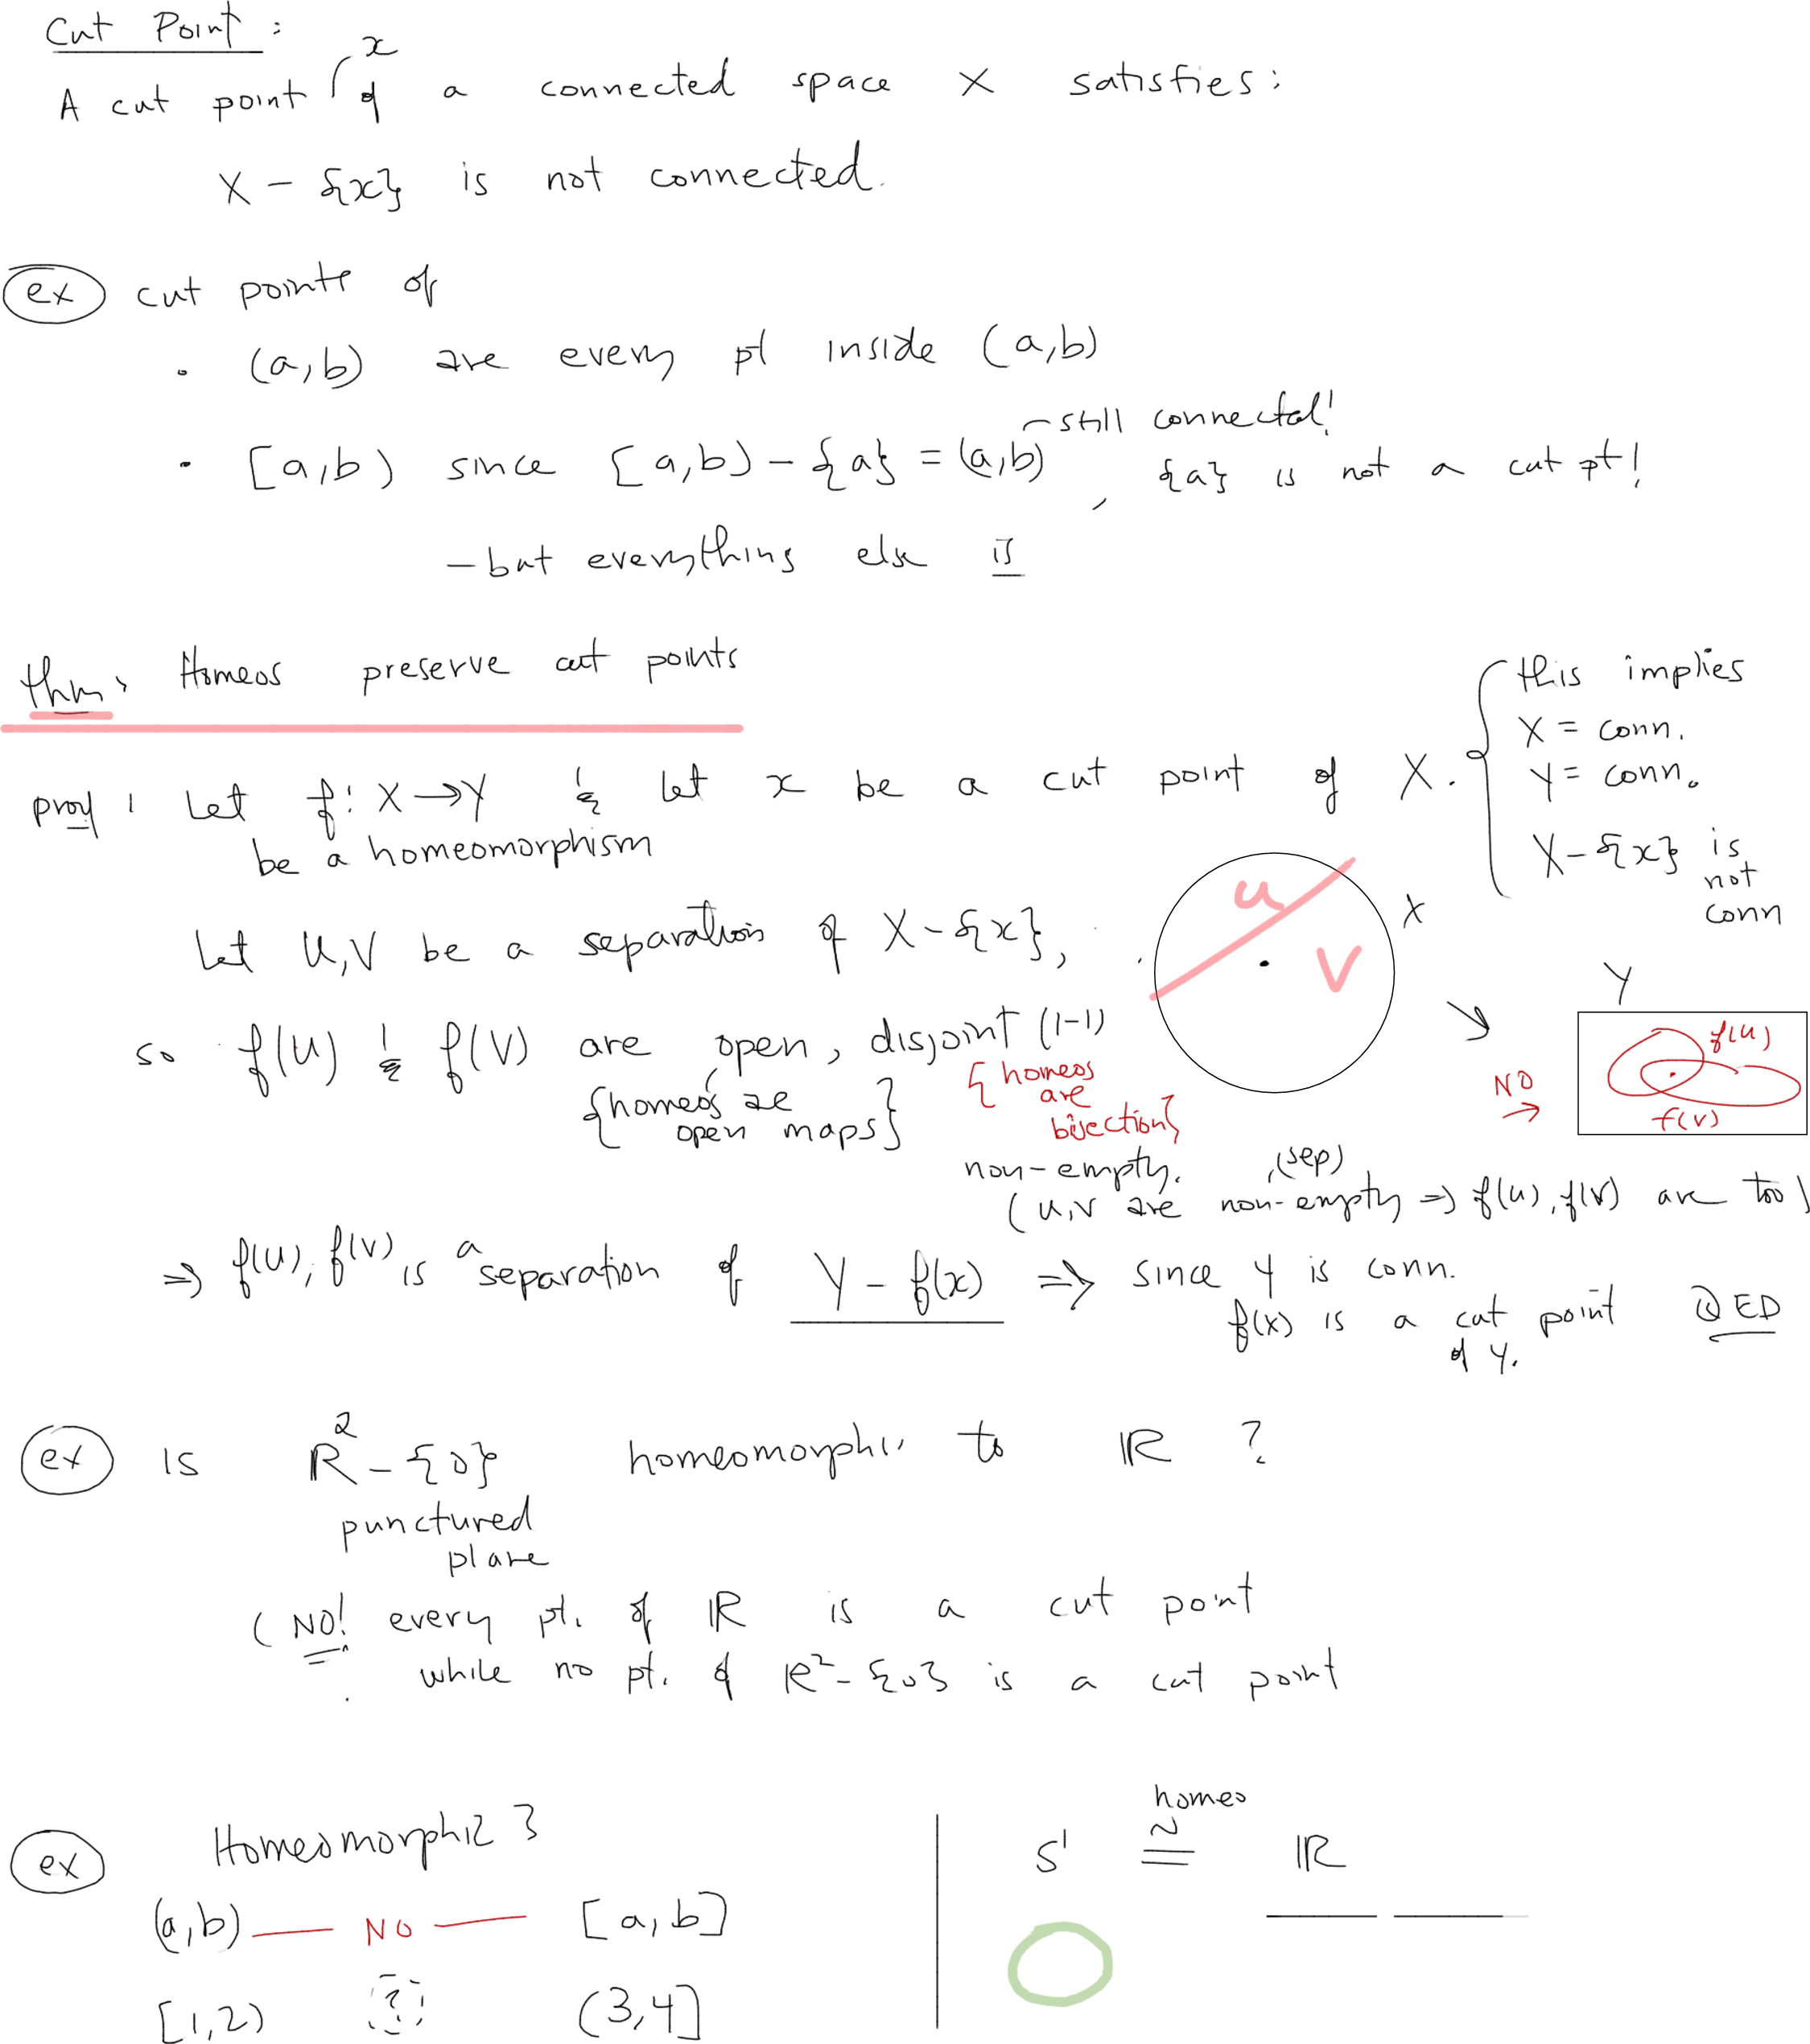 Cut Point :
A cut point x of a connected space X satisfies :
X - {x} is not connected.
ex cut points of
• (a,b) are every pt inside (a,b)
• [a,b) since [a,b) - {a} = (a,b) - still connected! , {a} is not a cut pt!
- but everything else is
thm: Homeos preserve cut points
proof : Let f: X → Y & let x be a cut point of X.
be a homeomorphism
this implies
X = conn.
Y = conn.
X - {x} is
not
conn
Let U,V be a separation of X - {x},
U
V
X
Y
f(U)
f(V)
NO →
so f(U) & f(V) are open, disjoint (1-1)
{homeos are
open maps}
{homeos
are
bijection}
non-empty.
(sep)
(U,V are non-empty ⇒ f(U), f(V) are too)
⇒ f(U), f(V) is a separation of Y - f(x) ⇒ since Y is conn.
f(x) is a cut point QED
of Y.
ex is R² - {0} homeomorphic to R ?
punctured
plane
( NO! every pt. of R is a cut point
while no pt. of R² - {0} is a cut point
ex Homeomorphic ?
(a,b) — NO — [a,b]
[1,2) ? (3,4]
homeo
S¹ ≅ R